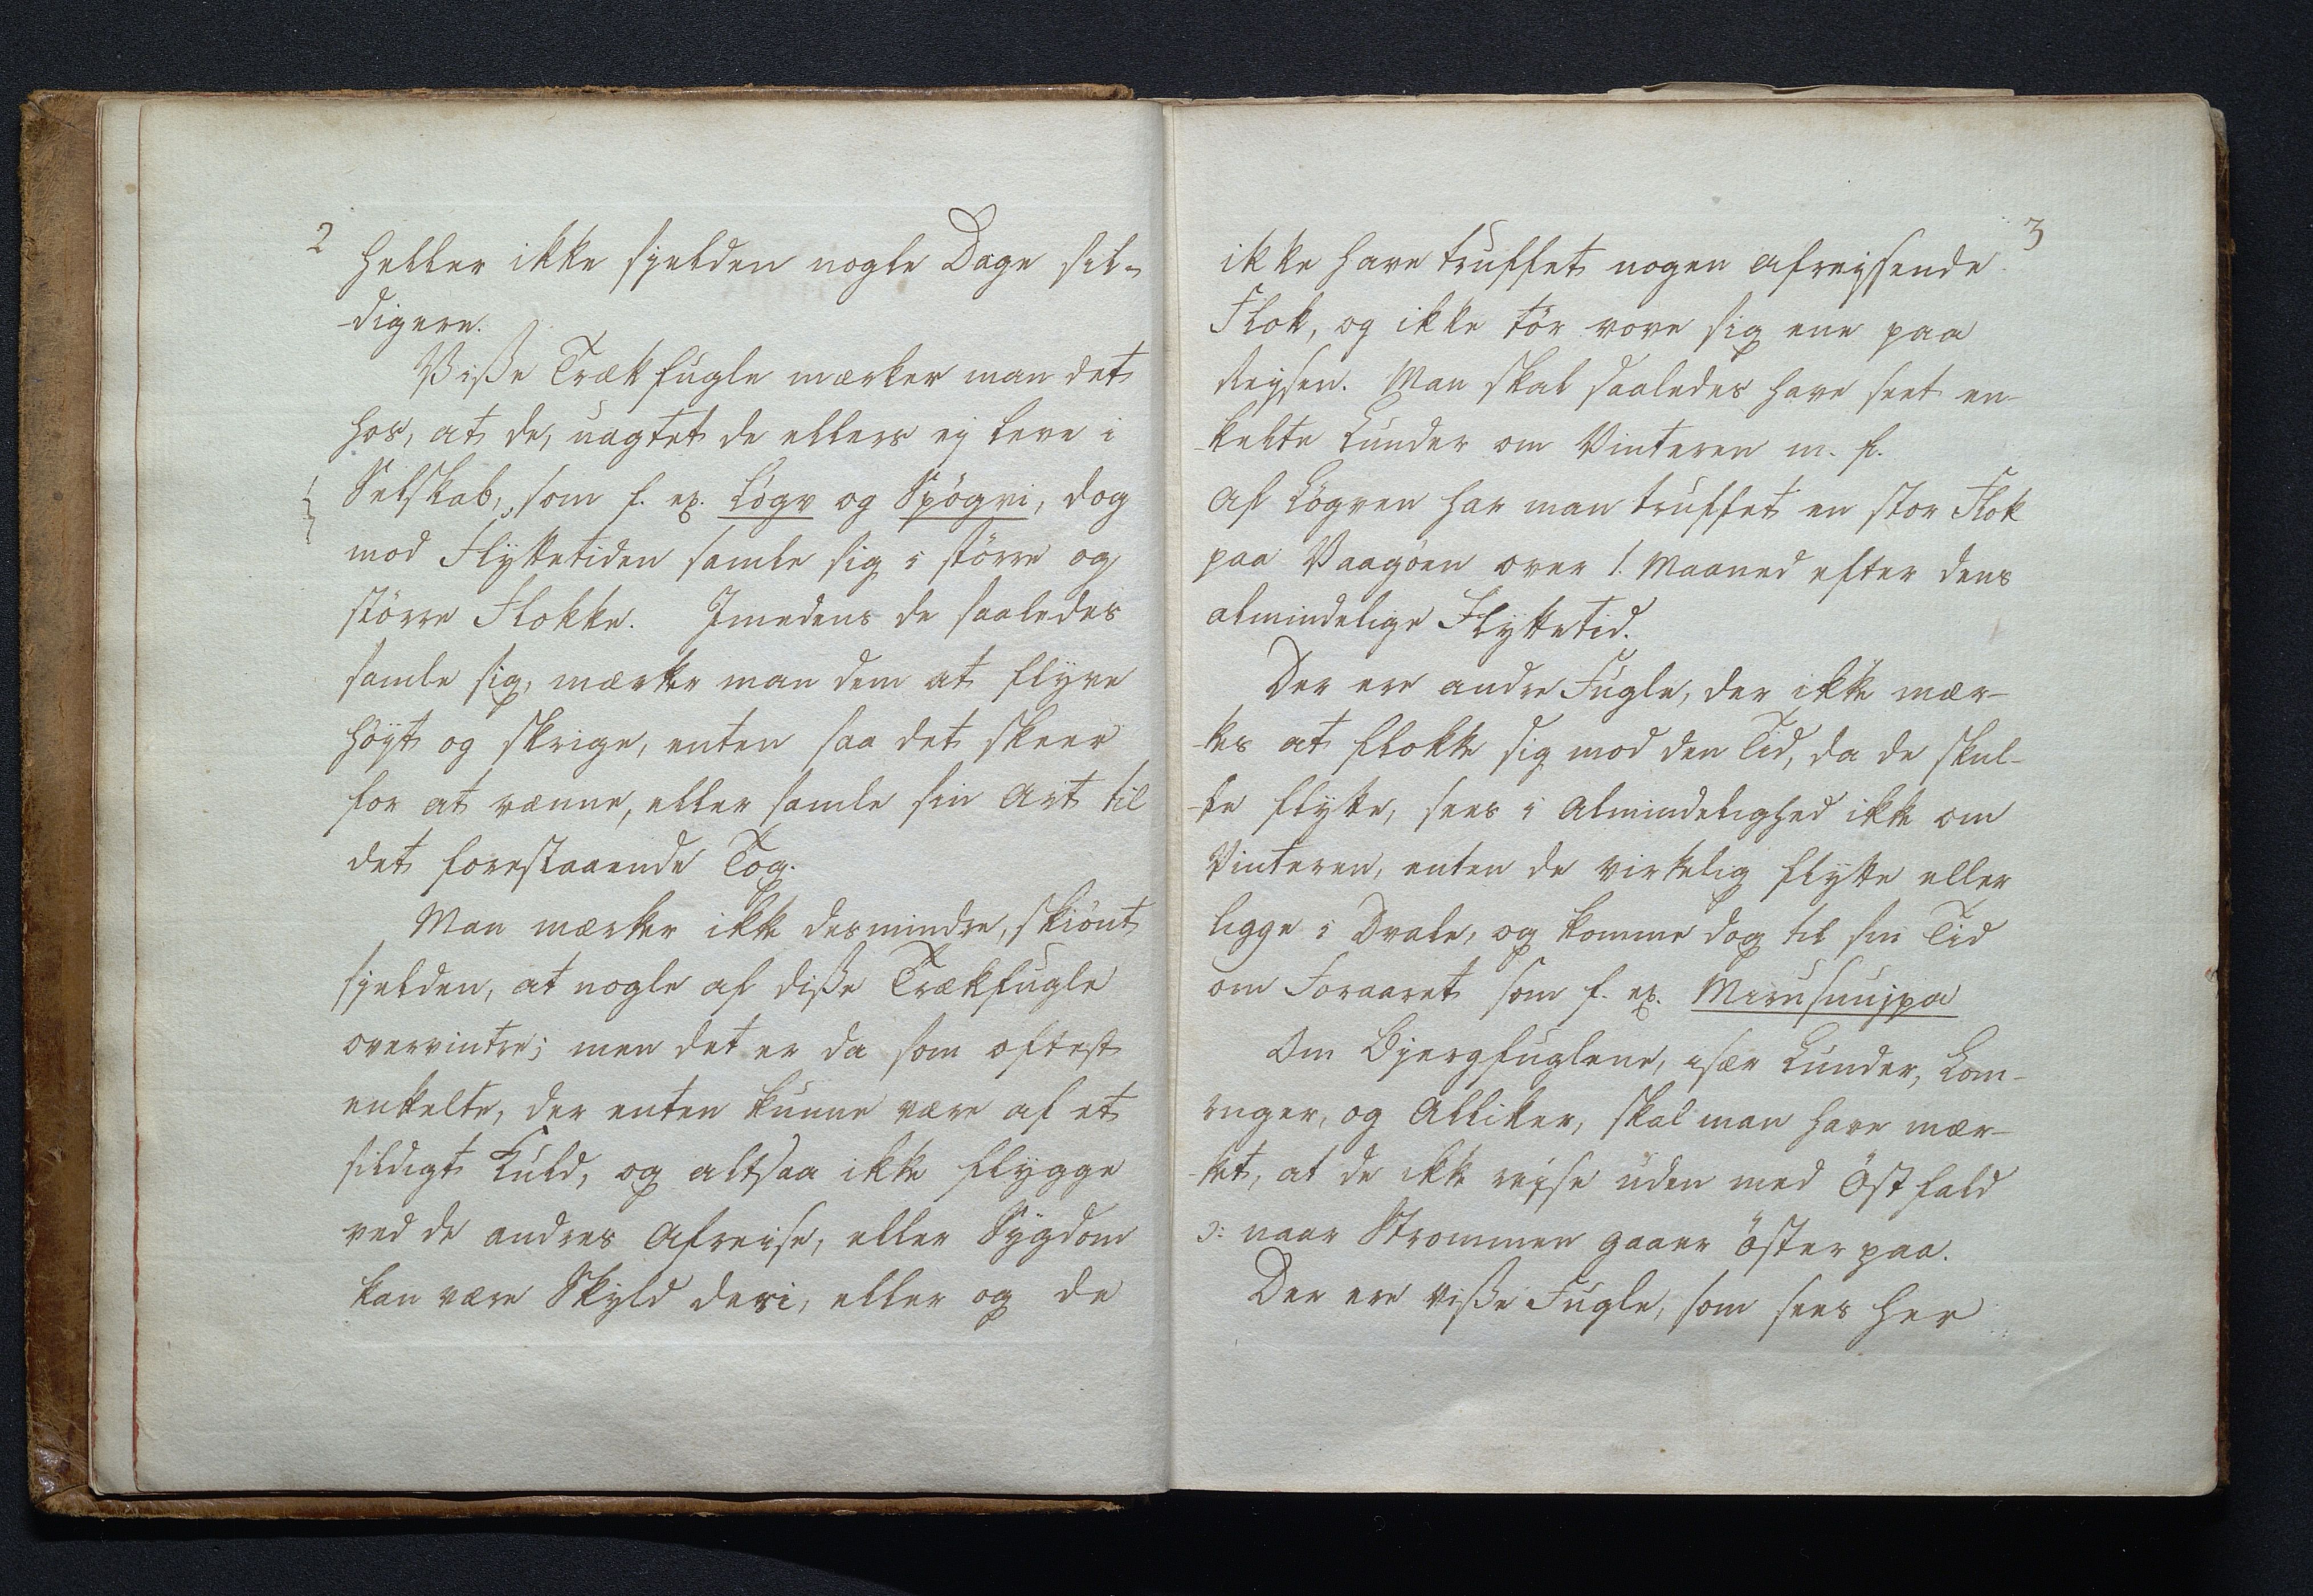 2
heller ikke sjelden nogle Dage sil-
-digere.
Visse Trækfugle mærker man det
hos, at de, uagtet de ellers ej leve i
Selskab, som f. ex. Lógv og Spógvi, dog
mod Flyttetiden samle sig i større og
større Flokke. Imedens de saaledes
samle sig, mærker man dem at flyve
høyt og skrige, enten saa det skeer
for at vænne, eller samle sin Art til
det forestaaende Tog.
Man mærker ikke desmindre, skiønt
sjelden, at nogle af disse Trækfugle
overvintre; men det er da som oftest
enkelte, der enten kunne være af et
sildigt Kuld, og altsaa ikke flygge
ved de andres Afreise, eller Sygdom
kan være Skyld deri, eller og de
3
ikke have truffet nogen afreysende
Flok, og ikke tør vove sig ene paa
Reysen. Man skal saaledes have seet en-
-kelte Lunder om Vinteren m. fl.
Af Lógven har man truffet en stor Flok
paa Vaagøen over 1. Maaned efter dens
almindelige Flyttetid.
Der ere andre Fugle, der ikke mær-
-kes at flokke sig mod den Tid, da de skul-
-le flytte, sees i Almindelighed ikke om
Vinteren, enten de virkelig flytte eller
ligge i Dvale, og komme dog til sin Tid
om Foraaret som f. ex. Mirusnujpa
Om Bjergfuglene, især Lunder, Lom-
vuger, og Alliker, skal man have mær-
-ket, at de ikke rejse uden med Östfald
ɔ: naar Strommen gaaer Öster paa.
Der ere visse Fugle, som sees her